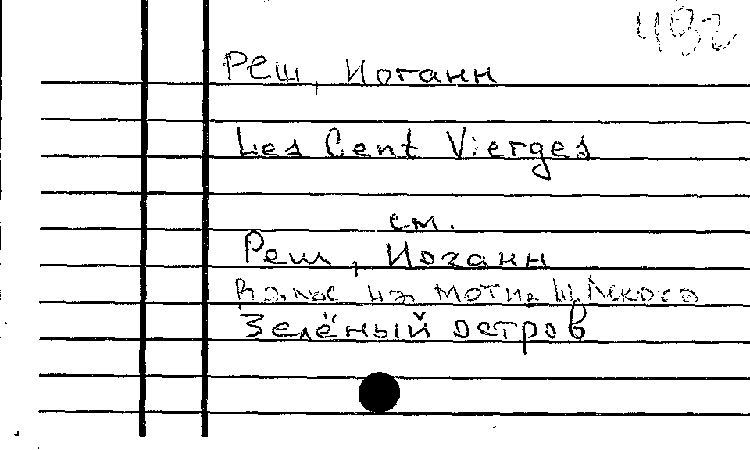 482
Реш, Иоганн
Les Cent Vierges
см.
Реш, Иоганн
Вальс на мотив Ш. Лекока
Зелёный остров